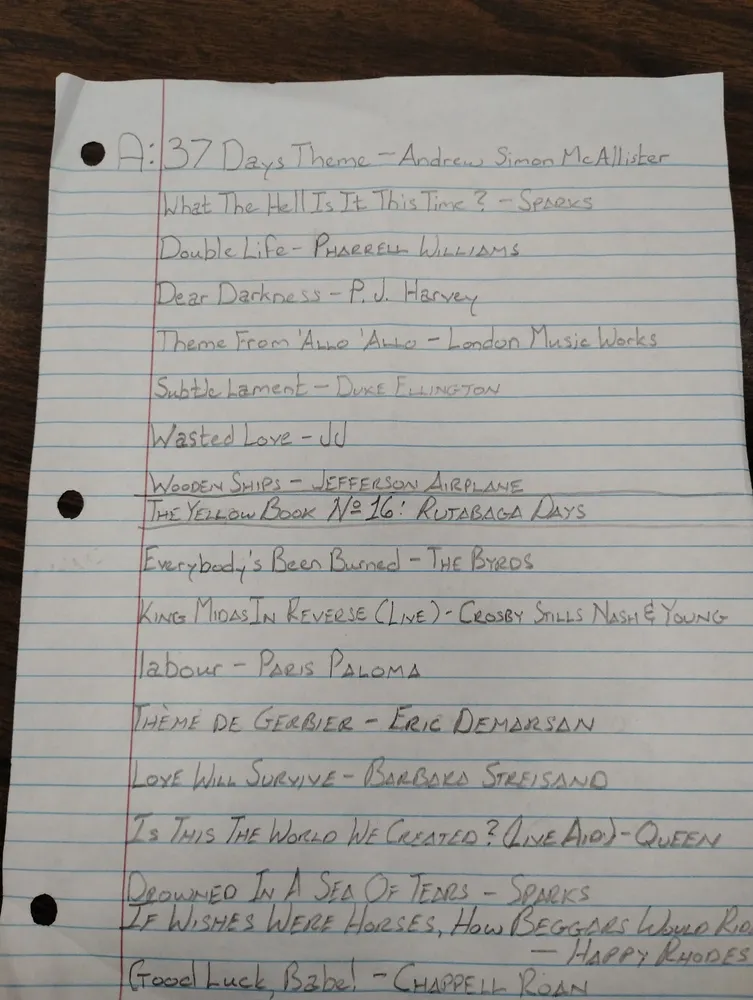 A: 37 Days Theme - Andrew Simon McAllister
What The Hell Is It This Time? - SPARKS
Double Life - PHARRELL WILLIAMS
Dear Darkness - P. J. Harvey
Theme From 'ALLO 'ALLO - London Music Works
Subtle Lament - DUKE ELLINGTON
Wasted Love - JJ
WOODEN SHIPS - JEFFERSON AIRPLANE
THE YELLOW BOOK Nº 16: RUTABAGA DAYS
Everybody's Been Burned - THE BYRDS
KING MIDAS IN REVERSE (LIVE) - CROSBY STILLS NASH & YOUNG
labour - PARIS PALOMA
THÈME DE GERBIER - ERIC DEMARSAN
LOVE WILL SURVIVE - BARBARA STREISAND
IS THIS THE WORLD WE CREATED? (LIVE AID) - QUEEN
DROWNED IN A SEA OF TEARS - SPARKS
IF WISHES WERE HORSES, HOW BEGGARS WOULD RID
- HAPPY RHODES
Good Luck, Babe! - CHAPPELL ROAN